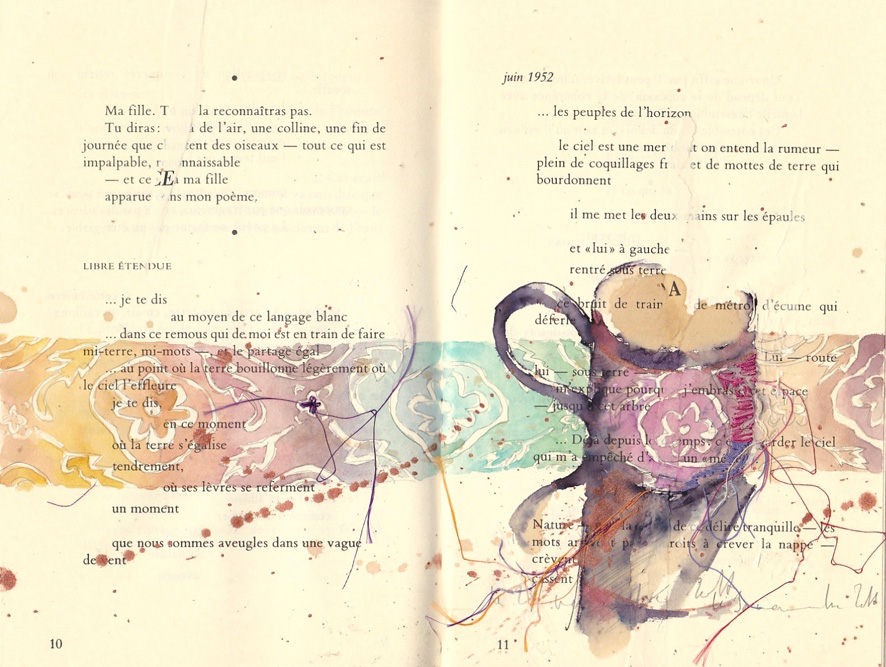 •
Ma fille. T la reconnaîtras pas.
Tu diras: de l'air, une colline, une fin de
journée que ch tent des oiseaux — tout ce qui est
impalpable, r nnaissable
— et ce E à ma fille
apparue ns mon poème,
•
LIBRE ÉTENDUE
... je te dis
au moyen de ce langage blanc
... dans ce remous qui de moi est en train de faire
mi-terre, mi-mots —, et le partage égal
... au point où la terre bouillonne légèrement où
le ciel l'effleure
je te dis,
en ce moment
où la terre s'égalise
tendrement,
où ses lèvres se referment
un moment
que nous sommes aveugles dans une vague
de vent
10
juin 1952
... les peuples de l'horizon
le ciel est une mer t on entend la rumeur —
plein de coquillages fr et de mottes de terre qui
bourdonnent
il me met les deux mains sur les épaules
et «lui» à gauche
rentré sous terre
A
ce bruit de train de métro, d'écume qui
déferle
Lui — route
lui — sous terre —
m'explique pourq j'embras e pace
— jusqu'à cet arbre
... Déjà depuis l mps, c'e arder le ciel
qui m'a empêché d' un «me
Nature la de délire tranquille — les
mots ar t p roits à crever la nappe —
crèvent
cassent
11